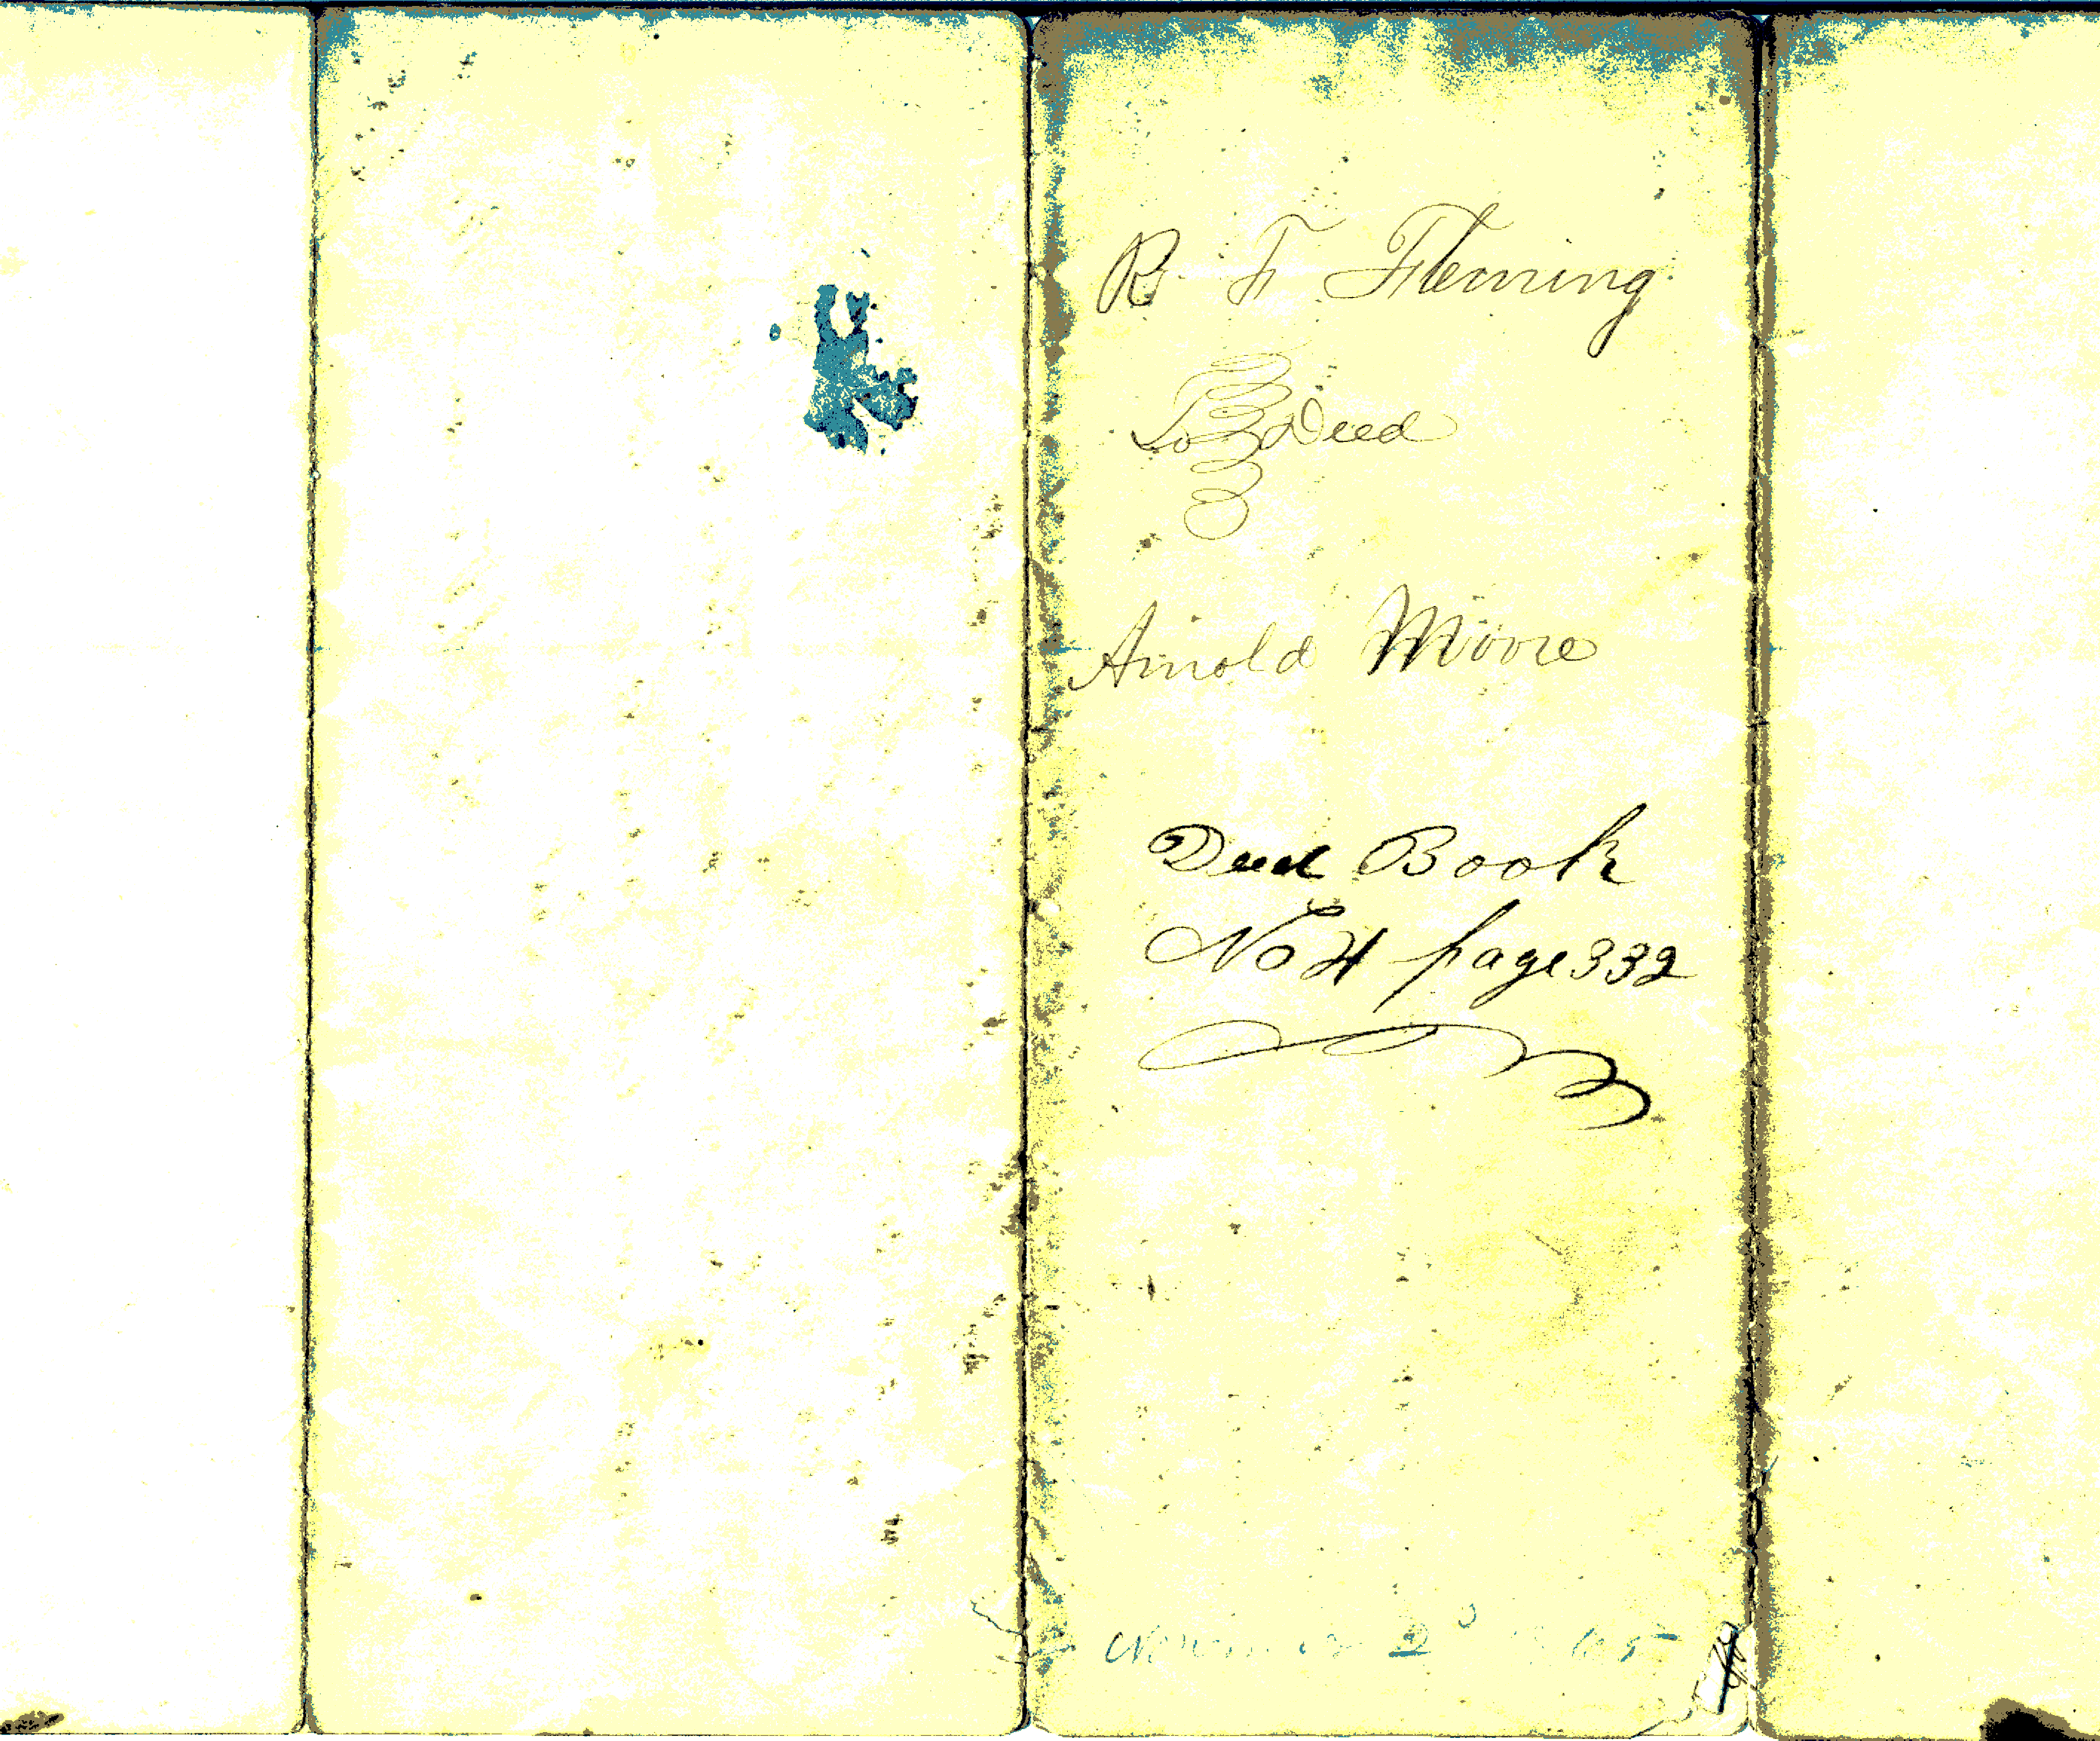 R. F. Fleming
To Deed
Arnold Moore
Deed Book
No 4 page 332